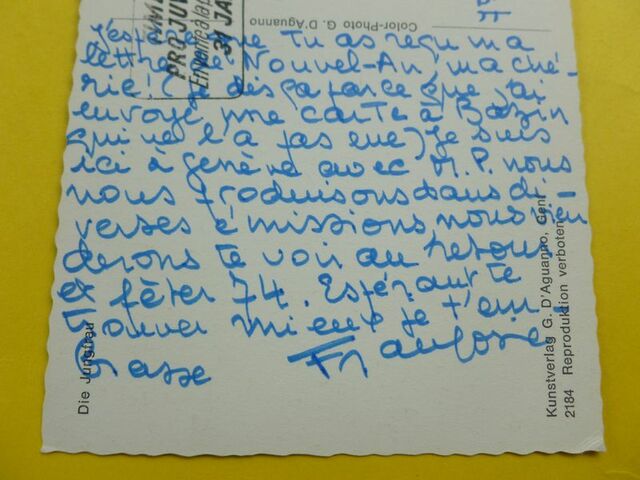 Color-Photo G. D'Aguanno
PRO JU
31 JA
j'espère que tu as reçu ma
lettre de Nouvel-An, ma ché-
rie! (je dis ça parce que j'ai
envoyé une carte à Bazin
qui ne l'a pas eue) Je suis
ici à genève avec M.P. nous
nous produisons dans di-
verses émissions, nous vien
derons te voir au retour
et fêter 74. Espérant te
trouver mieux je t'em
brasse Françoise
Die Jungfrau
Kunstverlag G. D'Aguanno, Genf
2184 Reproduktion verboten